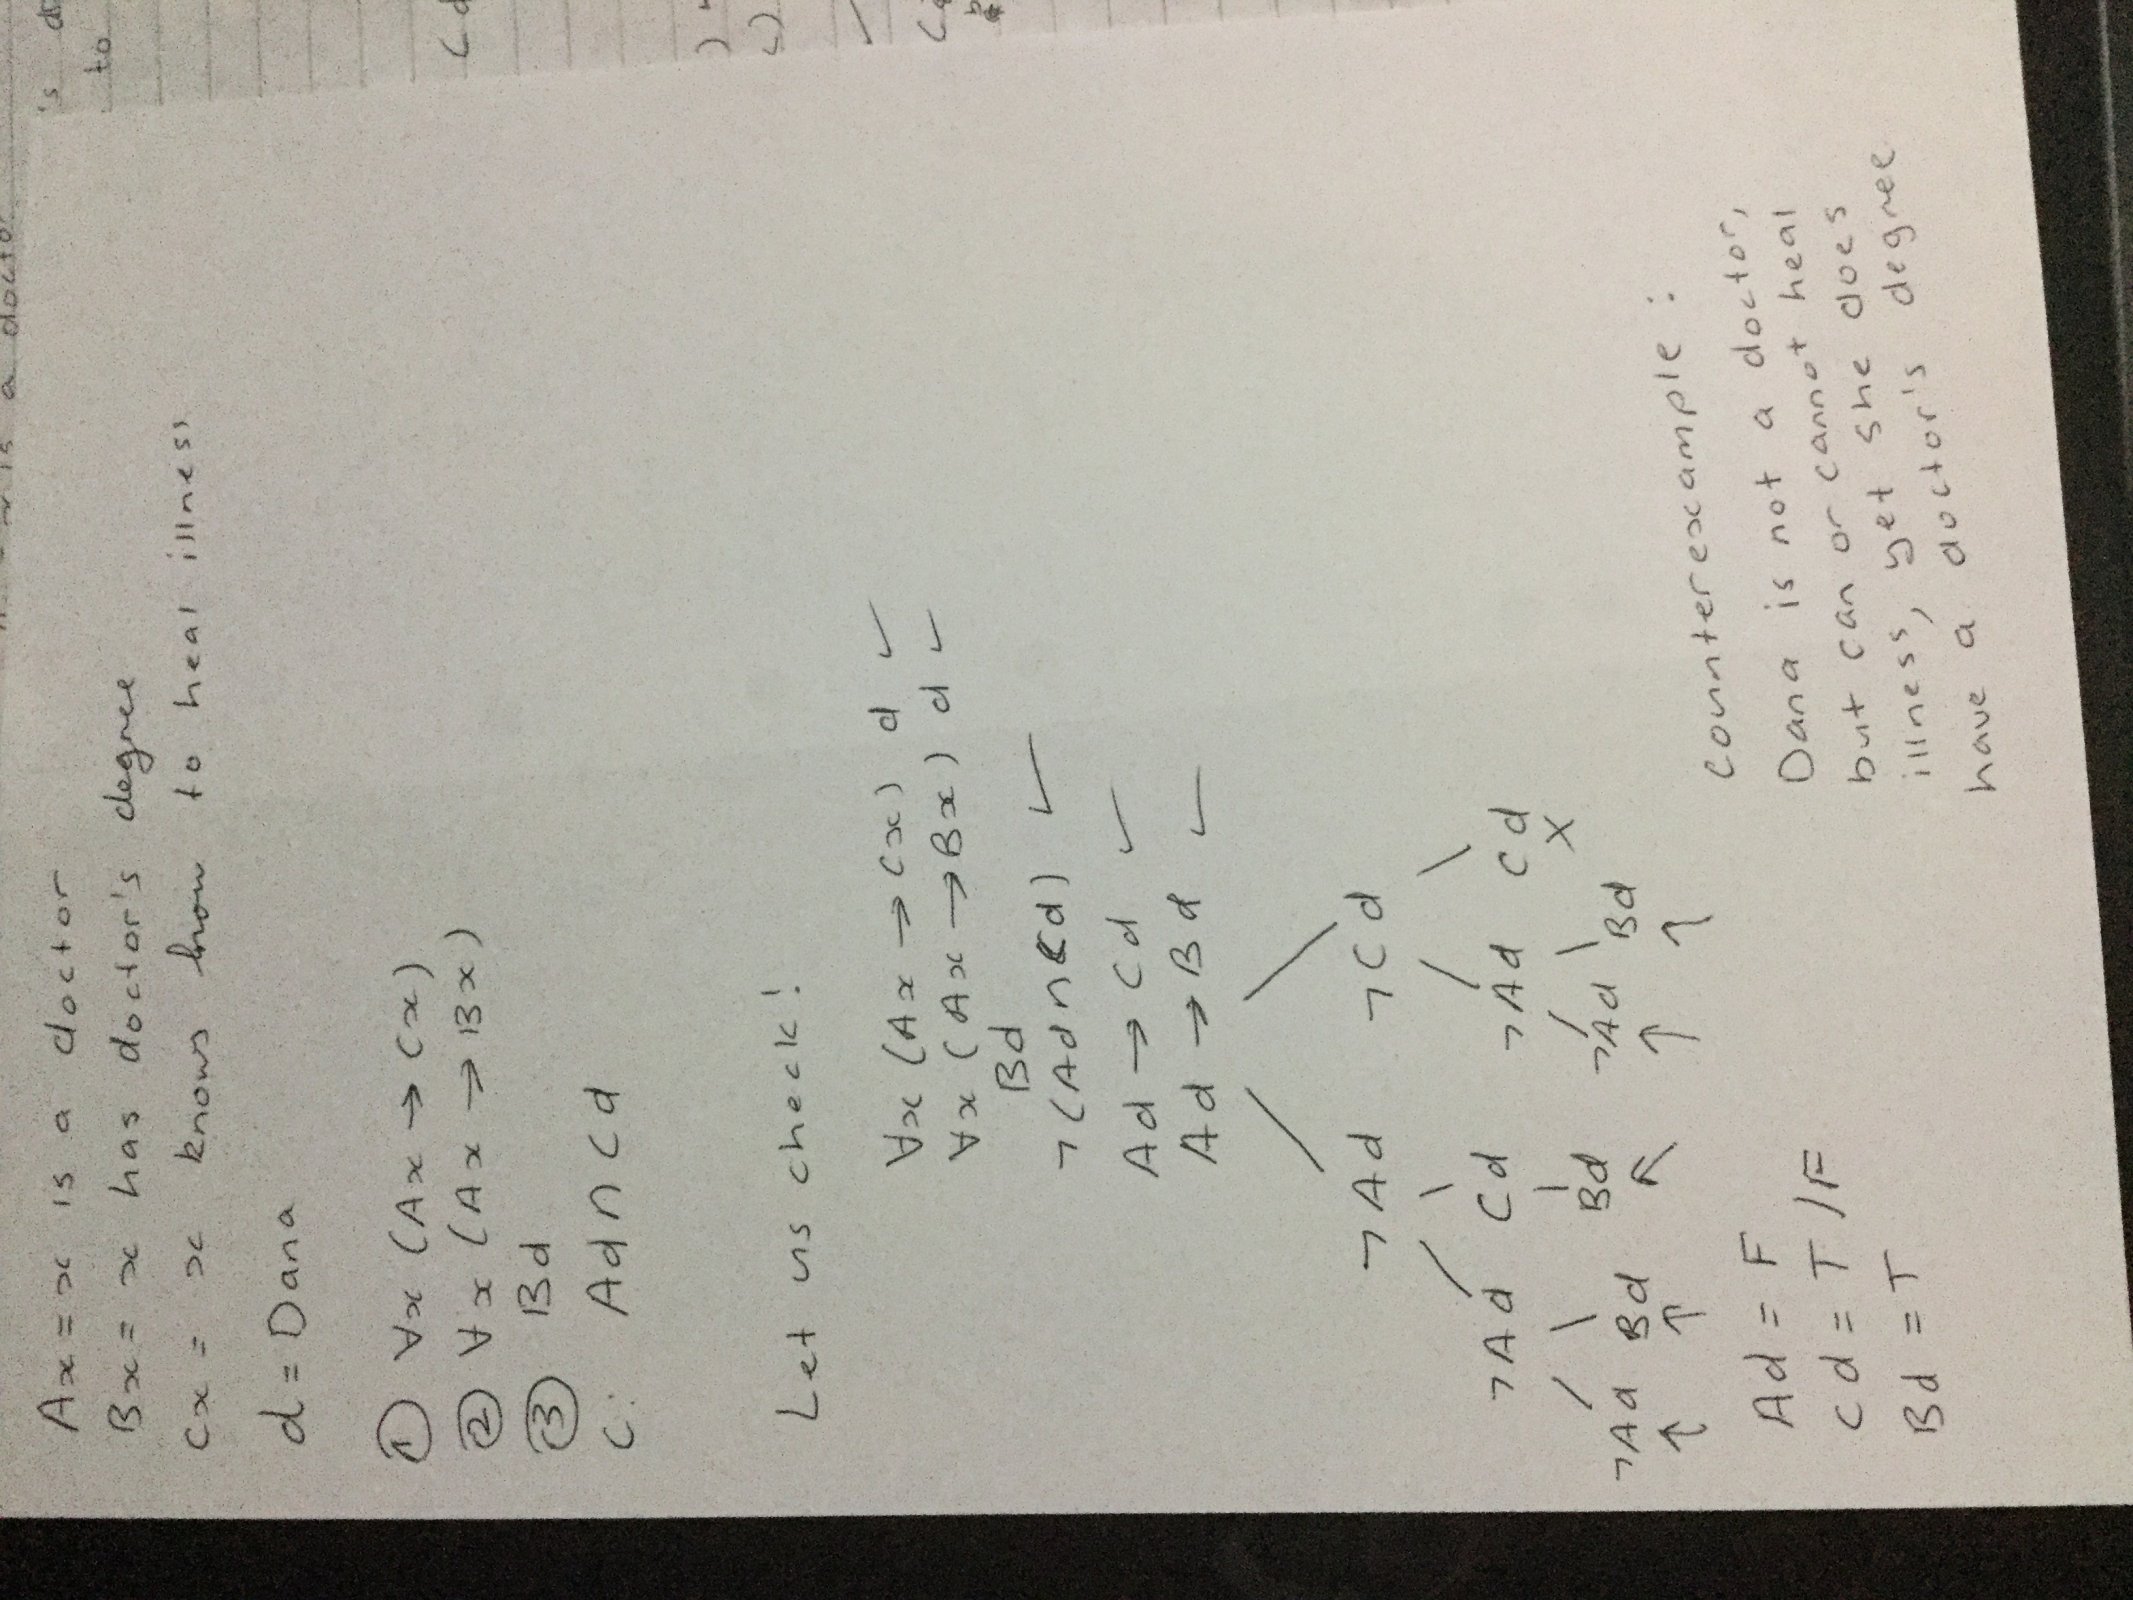 is a doctor
's
to
Ax = x is a doctor
Bx = x has doctor's degree
Cx = x knows how to heal illness
d = Dana
① ∀x (Ax → Cx)
② ∀x (Ax → Bx)
③ Bd
C: Ad ∩ Cd
Let us check!
∀x (Ax → Cx) d ✓
∀x (Ax → Bx) d ✓
Bd
¬(Ad ∩ Cd) ✓
Ad → Cd ✓
Ad → Bd ✓
¬Ad ¬Cd
¬Ad Cd ¬Ad Cd
X
¬Ad Bd Bd ¬Ad Bd
↑ ↑ ↑ ↑ ↑
Ad = F
Cd = T/F
Bd = T
Counterexample:
Dana is not a doctor,
but can or cannot heal
illness, yet she does
have a doctor's degree